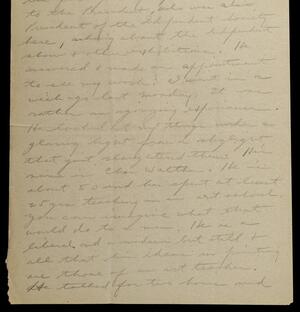 to the President, who was also
President of the Independent Society
here, asking about the Independent
show & other exhibitions. He
answered & made an appointment
to see my work. I went in a
week ago last Monday. It was
rather an experience.
He looked at my things under a
glaring light from a skylight
that just slaughtered them. His
name is Chas Walther. He is
about 50 and has spent at least
25 yrs teaching in an art school.
You can imagine what that
would do to a man. He is a
liberal and modern but still &
all that his ideas in painting
are those of an art teacher.
He talked for two hours and